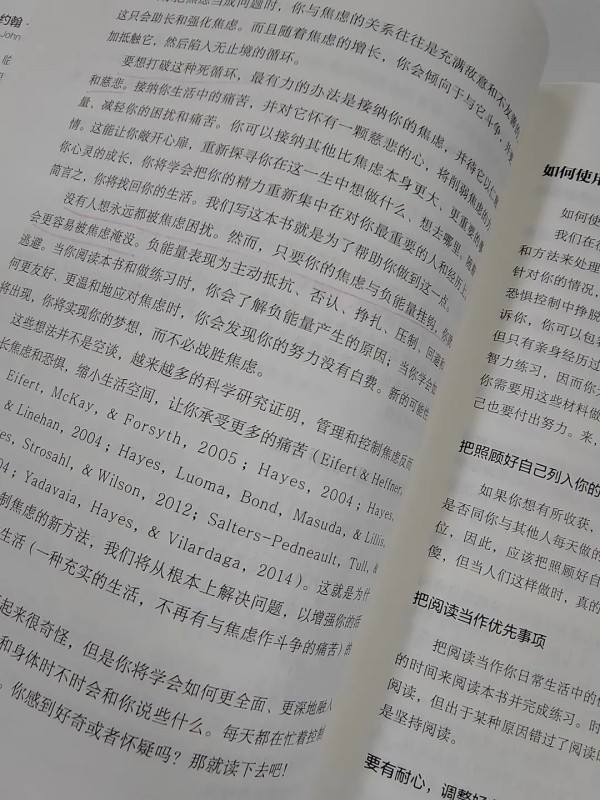 约翰·
John
你与焦虑的关系往往是充满敌意和不友善的
这只会助长和强化焦虑。而且随着焦虑的增长，你会倾向于与它斗争，
加抵触它，然后陷入无止境的循环。
要想打破这种死循环，最有力的办法是接纳你的焦虑，并待它以仁
和慈悲。接纳你生活中的痛苦，并对它怀有一颗慈悲的心，将削弱焦虑的力
量、减轻你的困扰和痛苦。你可以接纳其他比焦虑本身更大、更重要的事
情。这能让你敞开心扉，重新探寻你在这一生中想做什么、想去哪里。随着
你心灵的成长，你将学会把你的精力重新集中在对你最重要的人和经历上。
简言之，你将找回你的生活。我们写这本书就是为了帮助你做到这一点。
没有人想永远都被焦虑困扰。然而，只要你的焦虑与负能量挂钩，你就
会更容易被焦虑淹没。负能量表现为主动抵抗、否认、挣扎、压制、回避和
逃避。当你阅读本书和做练习时，你会了解负能量产生的原因；当你学会如
何更友好、更温和地应对焦虑时，你会发现你的努力没有白费。新的可能性
将出现，你将实现你的梦想，而不必战胜焦虑。
这些想法并不是空谈，越来越多的科学研究证明，管理和控制焦虑反而
长焦虑和恐惧，缩小生活空间，让你承受更多的痛苦（Eifert & Heffner,
Eifert, McKay, & Forsyth, 2005；Hayes, 2004；Hayes,
& Linehan, 2004；Hayes, Luoma, Bond, Masuda, & Lillis,
es, Strosahl, & Wilson, 2012；Salters-Pedneault, Tull, &
04；Yadavaia, Hayes, & Vilardaga, 2014）。这就是为什
制焦虑的新方法，我们将从根本上解决问题，以增强你的活
生活（一种充实的生活，不再有与焦虑作斗争的痛苦）的
起来很奇怪，但是你将学会如何更全面、更深地融入
和身体时不时会和你说些什么。每天都在忙着控制
。你感到好奇或者怀疑吗？那就读下去吧！
如何使用
如何使
我们在往
和方法来处理
针对你的情况，
恐惧控制中挣脱
诉你，你可以包容
但只有亲身经历过
智力练习，因而你
你需要用这些材料做
己也要付出努力。来，
把照顾好自己列入你的
如果你想有所收获，
是否同你与其他人每天做的
位，因此，应该把照顾好自
傻，但当人们这样做时，真的
把阅读当作优先事项
把阅读当作你日常生活中的
的时间来阅读本书并完成练习。时
阅读，但出于某种原因错过了阅读
是坚持阅读。
要有耐心，调整好